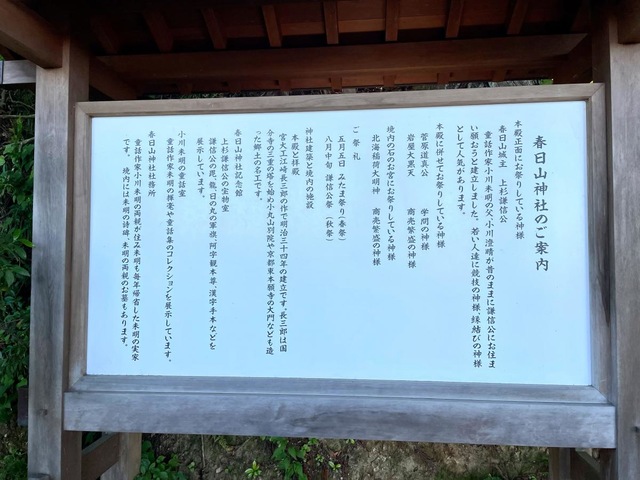 春日山神社のご案内
本殿正面にお祭りしている神様
春日山城主　上杉謙信公
童話作家小川未明の父、小川澄晴が昔のままに謙信公にお住ま
い願おうと建立しました。若い人達に競技の神様、縁結びの神様
として人気があります。
本殿に併せてお祭りしている神様
菅原道真公　学問の神様
岩屋大黒天　商売繁盛の神様
境内の石のお宮にお祭りしている神様
北海稲荷大明神　商売繁盛の神様
ご祭礼
五月五日　みたま祭り（春祭）
八月中旬　謙信公祭（秋祭）
神社建築と境内の施設
本殿と拝殿
宮大工江崎長三郎の作で明治三十四年の建立です。長三郎は国
分寺の三重の塔を始め小丸山別院や京都東本願寺の大門なども造
った郷土の名工です。
春日山神社記念館
上杉謙信公の宝物室
謙信公の毘、龍、日の丸の軍旗、阿字観本尊、漢字手本などを
展示しています。
小川未明の童話室
童話作家未明の揮毫や童話集のコレクションを展示しています。
春日山神社社務所
童話作家小川未明の両親が住み未明も毎年帰省した未明の実家
です。境内には未明の詩碑、未明の両親のお墓もあります。